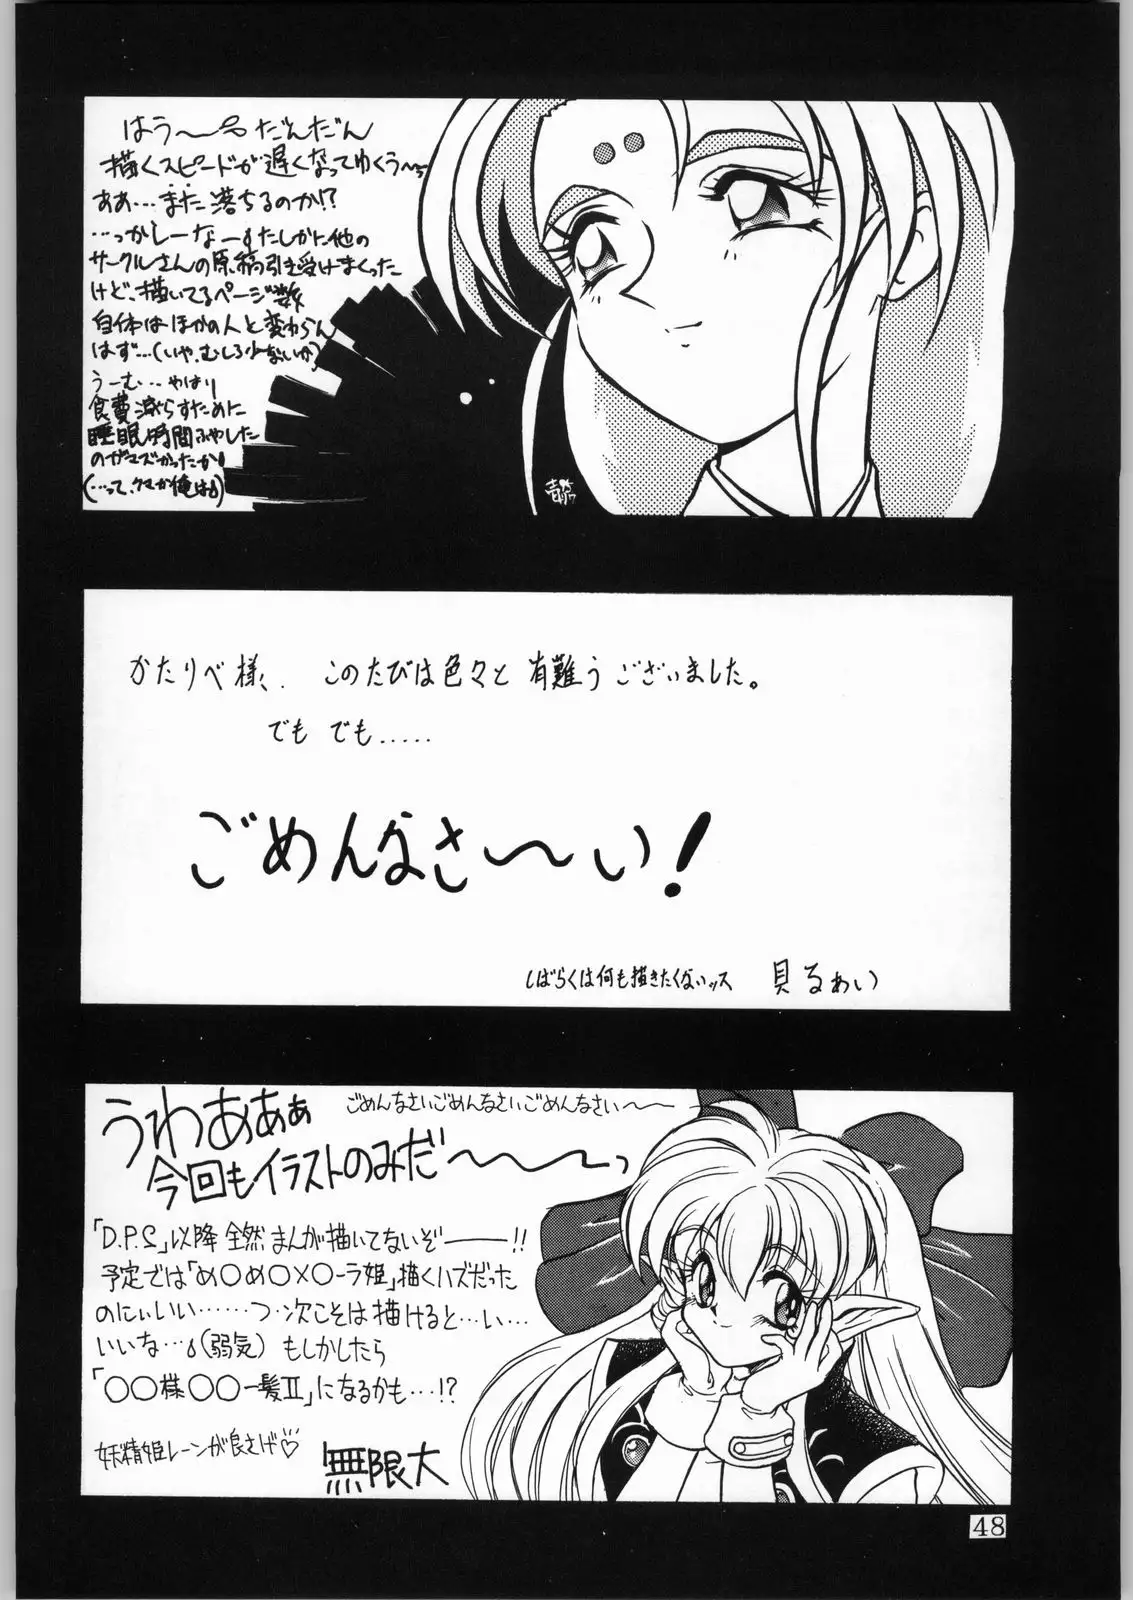 はう〜 だんだん
描くスピードが遅くなってゆくう〜
ああ…また落ちるのか!?
…っかしーなーすたしかに他の
サークルさんの原稿引き受けまくった
けど、描いてるページ数
自体はほかの人と変わらん
はず…(いや、むしろ少ないか)
うーむ…やはり
食費減らすために
睡眠時間ふやした
のがマズかったか
(…って、クマか俺は)
かたりべ様、このたびは色々と有難うございました。
でもでも.....
ごめんなさ〜い!
しばらくは何も描きたくないッス 貝るあい
うわあああ ごめんなさいごめんなさいごめんなさい〜
今回もイラストのみだ〜〜っ
「D.P.S」以降全然まんが描いてないぞ――!!
予定では「め○め○×○ーラ姫」描くハズだった
のにぃいい……つ・次こそは描けると…い…
いいな…(弱気) もしかしたら
「○○様○○一髪Ⅱ」になるかも…!?
妖精姫レーンが良さげ♡ 無限大
48